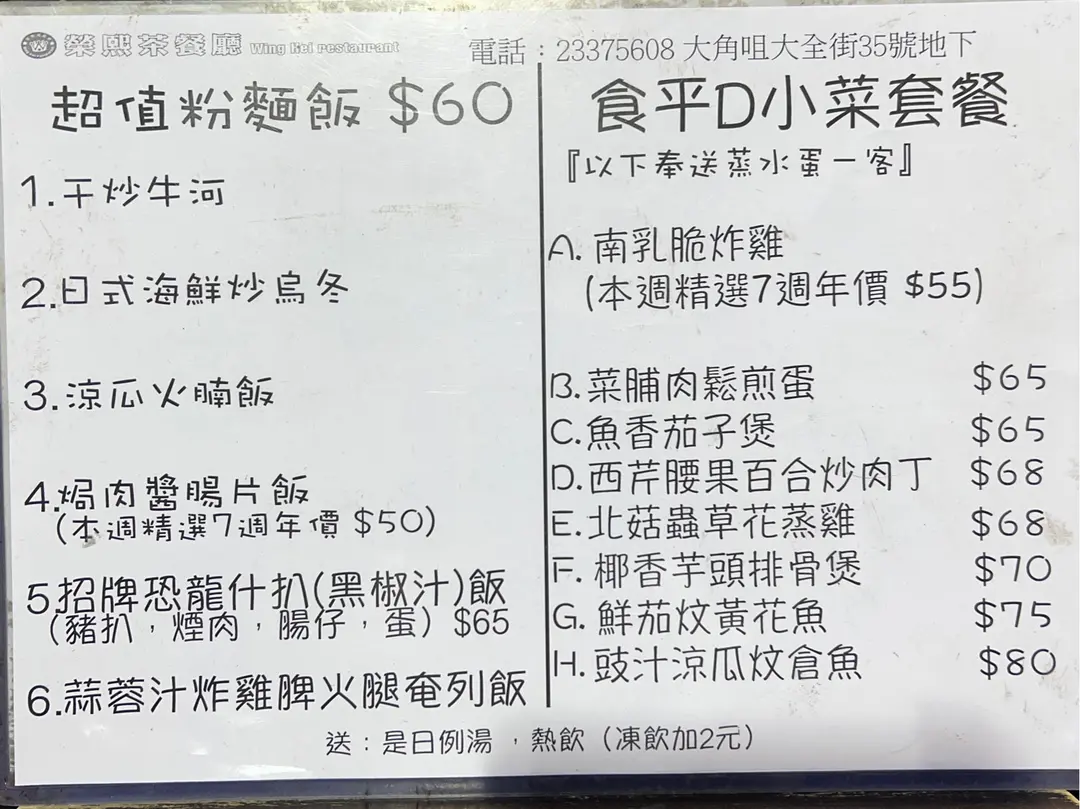 榮熙茶餐廳 Wing Hei restaurant
電話：23375608 大角咀大全街35號地下
超值粉麵飯 $60
1.干炒牛河
2.日式海鮮炒烏冬
3.涼瓜火腩飯
4.焗肉醬腸片飯
(本週精選7週年價 $50)
5.招牌恐龍什扒(黑椒汁)飯
(豬扒，煙肉，腸仔，蛋) $65
6.蒜蓉汁炸雞脾火腿奄列飯
食平D小菜套餐
『以下奉送蒸水蛋一客』
A. 南乳脆炸雞
(本週精選7週年價 $55)
B.菜脯肉鬆煎蛋 $65
C.魚香茄子煲 $65
D.西芹腰果百合炒肉丁 $68
E.北菇蟲草花蒸雞 $68
F. 椰香芋頭排骨煲 $70
G. 鮮茄炆黃花魚 $75
H.豉汁涼瓜炆倉魚 $80
送：是日例湯 ，熱飲（凍飲加2元）